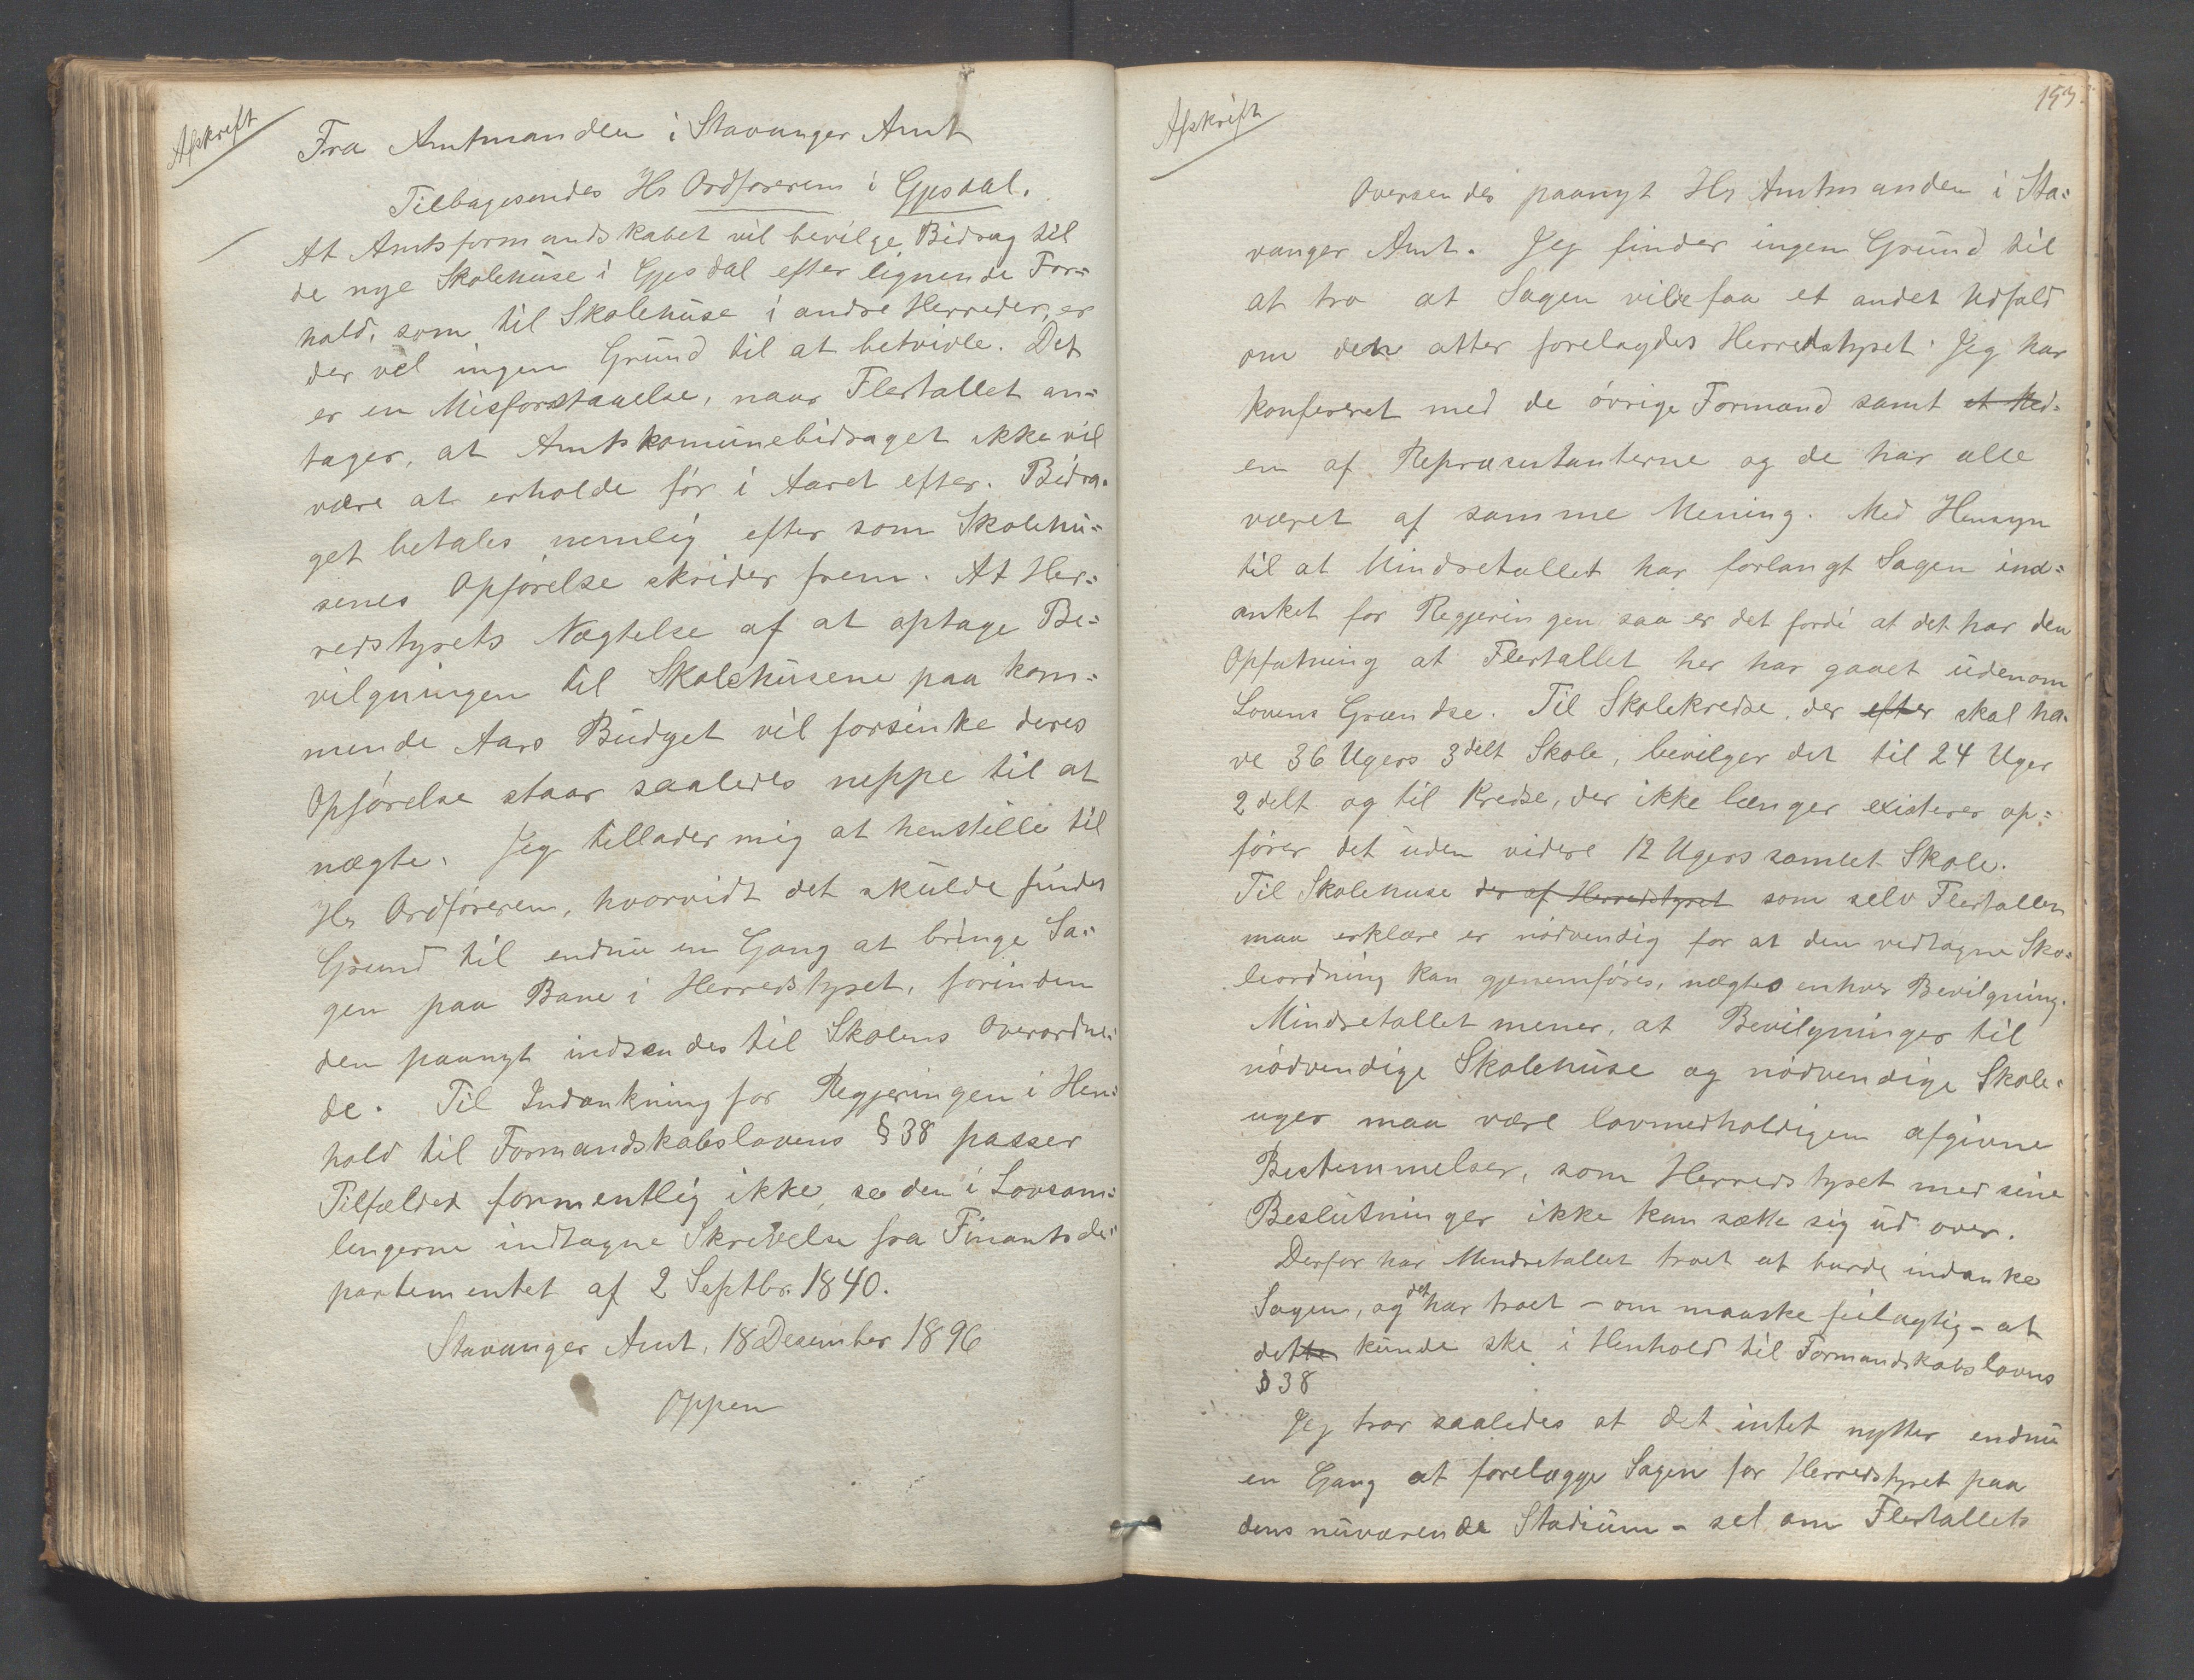 Afskrift
Fra Amtmanden i Stavanger Amt
Tilbagesendes Hr Ordføreren i Gjesdal.
At Amtsformandskabet vil bevilge Bidrag til
de nye Skolehuse i Gjesdal efter lignende For=
hold, som til Skolehuse i andre Herreder, er
der vel ingen Grund til at betvivle. Det
er en Misforstaaelse, naar Flertallet an=
tager, at Amtskomunebidraget ikke vil
være at erholde før i Aaret efter. Bidra=
get betales nemlig efter som Skolehu=
senes Opførelse skrider frem. At Her=
redstyrets Nægtelse af at optage Be=
vilgningen til Skolehusene paa kom=
mende Aars Budget vil forsinke deres
Opførelse staar saaledes neppe til at
nægte. Jeg tillader mig at henstille til
Hr Ordføreren, hvorvidt det skulde findes
Grund til endnu en Gang at bringe Sa=
gen paa Bane i Herredstyret, forinden
den paanyt indsendes til Skolens Overordne=
de. Til Indankning for Regjeringen i Hen=
hold til Formandskabslovens § 38 passer
Tilfældet formentlig ikke, se den i Lovsam=
lingerne indtagne Skrivelse fra Finantsde=
partementet af 2 Septbr. 1840.
Stavanger Amt, 18 Desember 1896
Oppen
153
Afskrift
Oversendes paanyt Hr Amtmanden i Sta=
vanger Amt. Jeg finder ingen Grund til
at tro at Sagen vilde faa et andet Udfald
om den atter forelagdes Herredstyret. Jeg har
konfereret med de øvrige Formænd samt et Med=
en af Repræsentanterne og de har alle
været af samme Mening. Med Hensyn
til at Mindretallet har forlangt Sagen ind=
anket for Regjeringen saa er det fordi at det har den
Opfatning at Flertallet her har gaaet udenom
Lovens Grændse. Til Skolekredse, der efter skal ha=
ve 36 Ugers 3delt Skole, bevilger det til 24 Uger
2 delt og til Kredse, der ikke længer existerer op=
fører det uden videre 12 Ugers samlet Skole.
Til Skolehuse der af Herredstyret som selv Flertallet
maa erklære er nødvendig for at den vedtagne Sko=
leordning kan gjenemføres, nægtes enhver Bevilgning.
Mindretallet mener, at Bevilgninger til
nødvendige Skolehuse og nødvendige Skole=
uger maa være lovmedholdigen afgivne
Bestemmelser, som Herredstyret med sine
Beslutninger ikke kan sætte sig ud over.
Derfor har Mindretallet troet at burde indanke
Sagen, og det har troet – om maaske feilagtig – at
dette kunde ske i Henhold til Formandskabslovens
§ 38
Jeg tror saaledes at det intet nytter endnu
en Gang at forelægge Sagen for Herredstyret paa
dens nuværende Stadium – sel om Flertallets